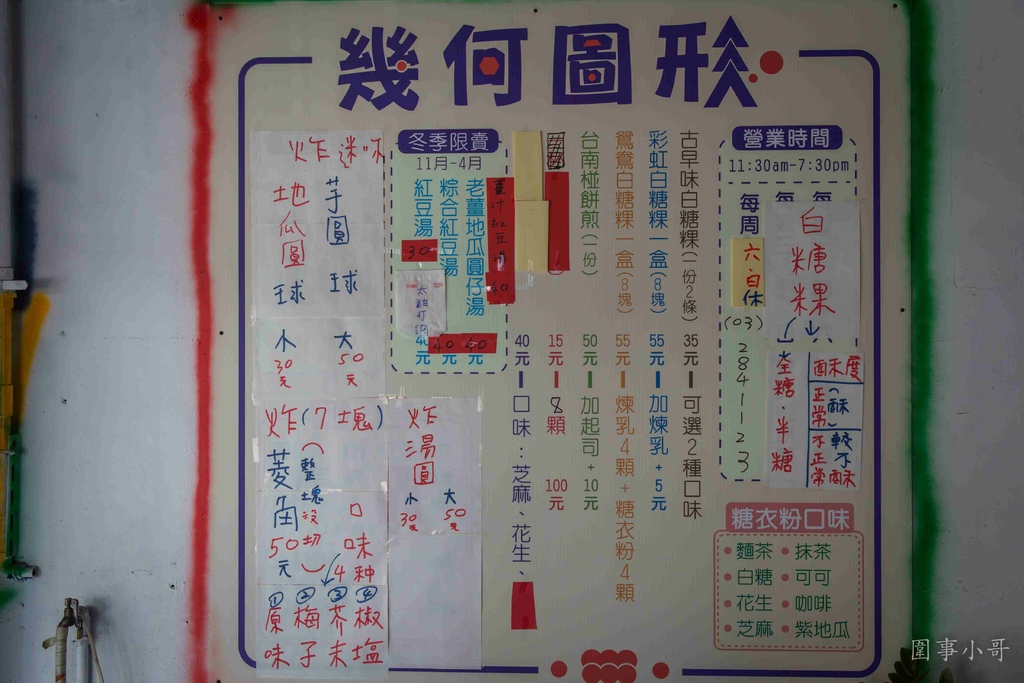 幾何圖形
營業時間
11:30am-7:30pm
每周
六.日休
(03)
2841123
白糖粿
全糖.半糖
酥度
正常(酥)
不正常
較不酥
糖衣粉口味
• 麵茶 • 抹茶
• 白糖 • 可可
• 花生 • 咖啡
• 芝麻 • 紫地瓜
古早味白糖粿(一份2條) 35元 可選2種口味
彩虹白糖粿一盒(8塊) 55元 加煉乳+5元
鴛鴦白糖粿一盒(8塊) 55元 煉乳4顆+糖衣粉4顆
台南椪餅煎(一份) 50元 加起司+10元
15元 8顆 100元
40元 口味:芝麻、花生、
冬季限賣
11月-4月
薑汁紅豆湯 40
老薑地瓜圓仔湯 40元
綜合紅豆湯 40元
紅豆湯 30
炸
芋圓球
地瓜圓球
大 50元
小 30元
炸(7塊)
菱角 50元
(整塊沒切)
口味4种
①原味
②梅子
③芥末
④椒塩
炸湯圓
大 50元
小 30元
圍事小哥